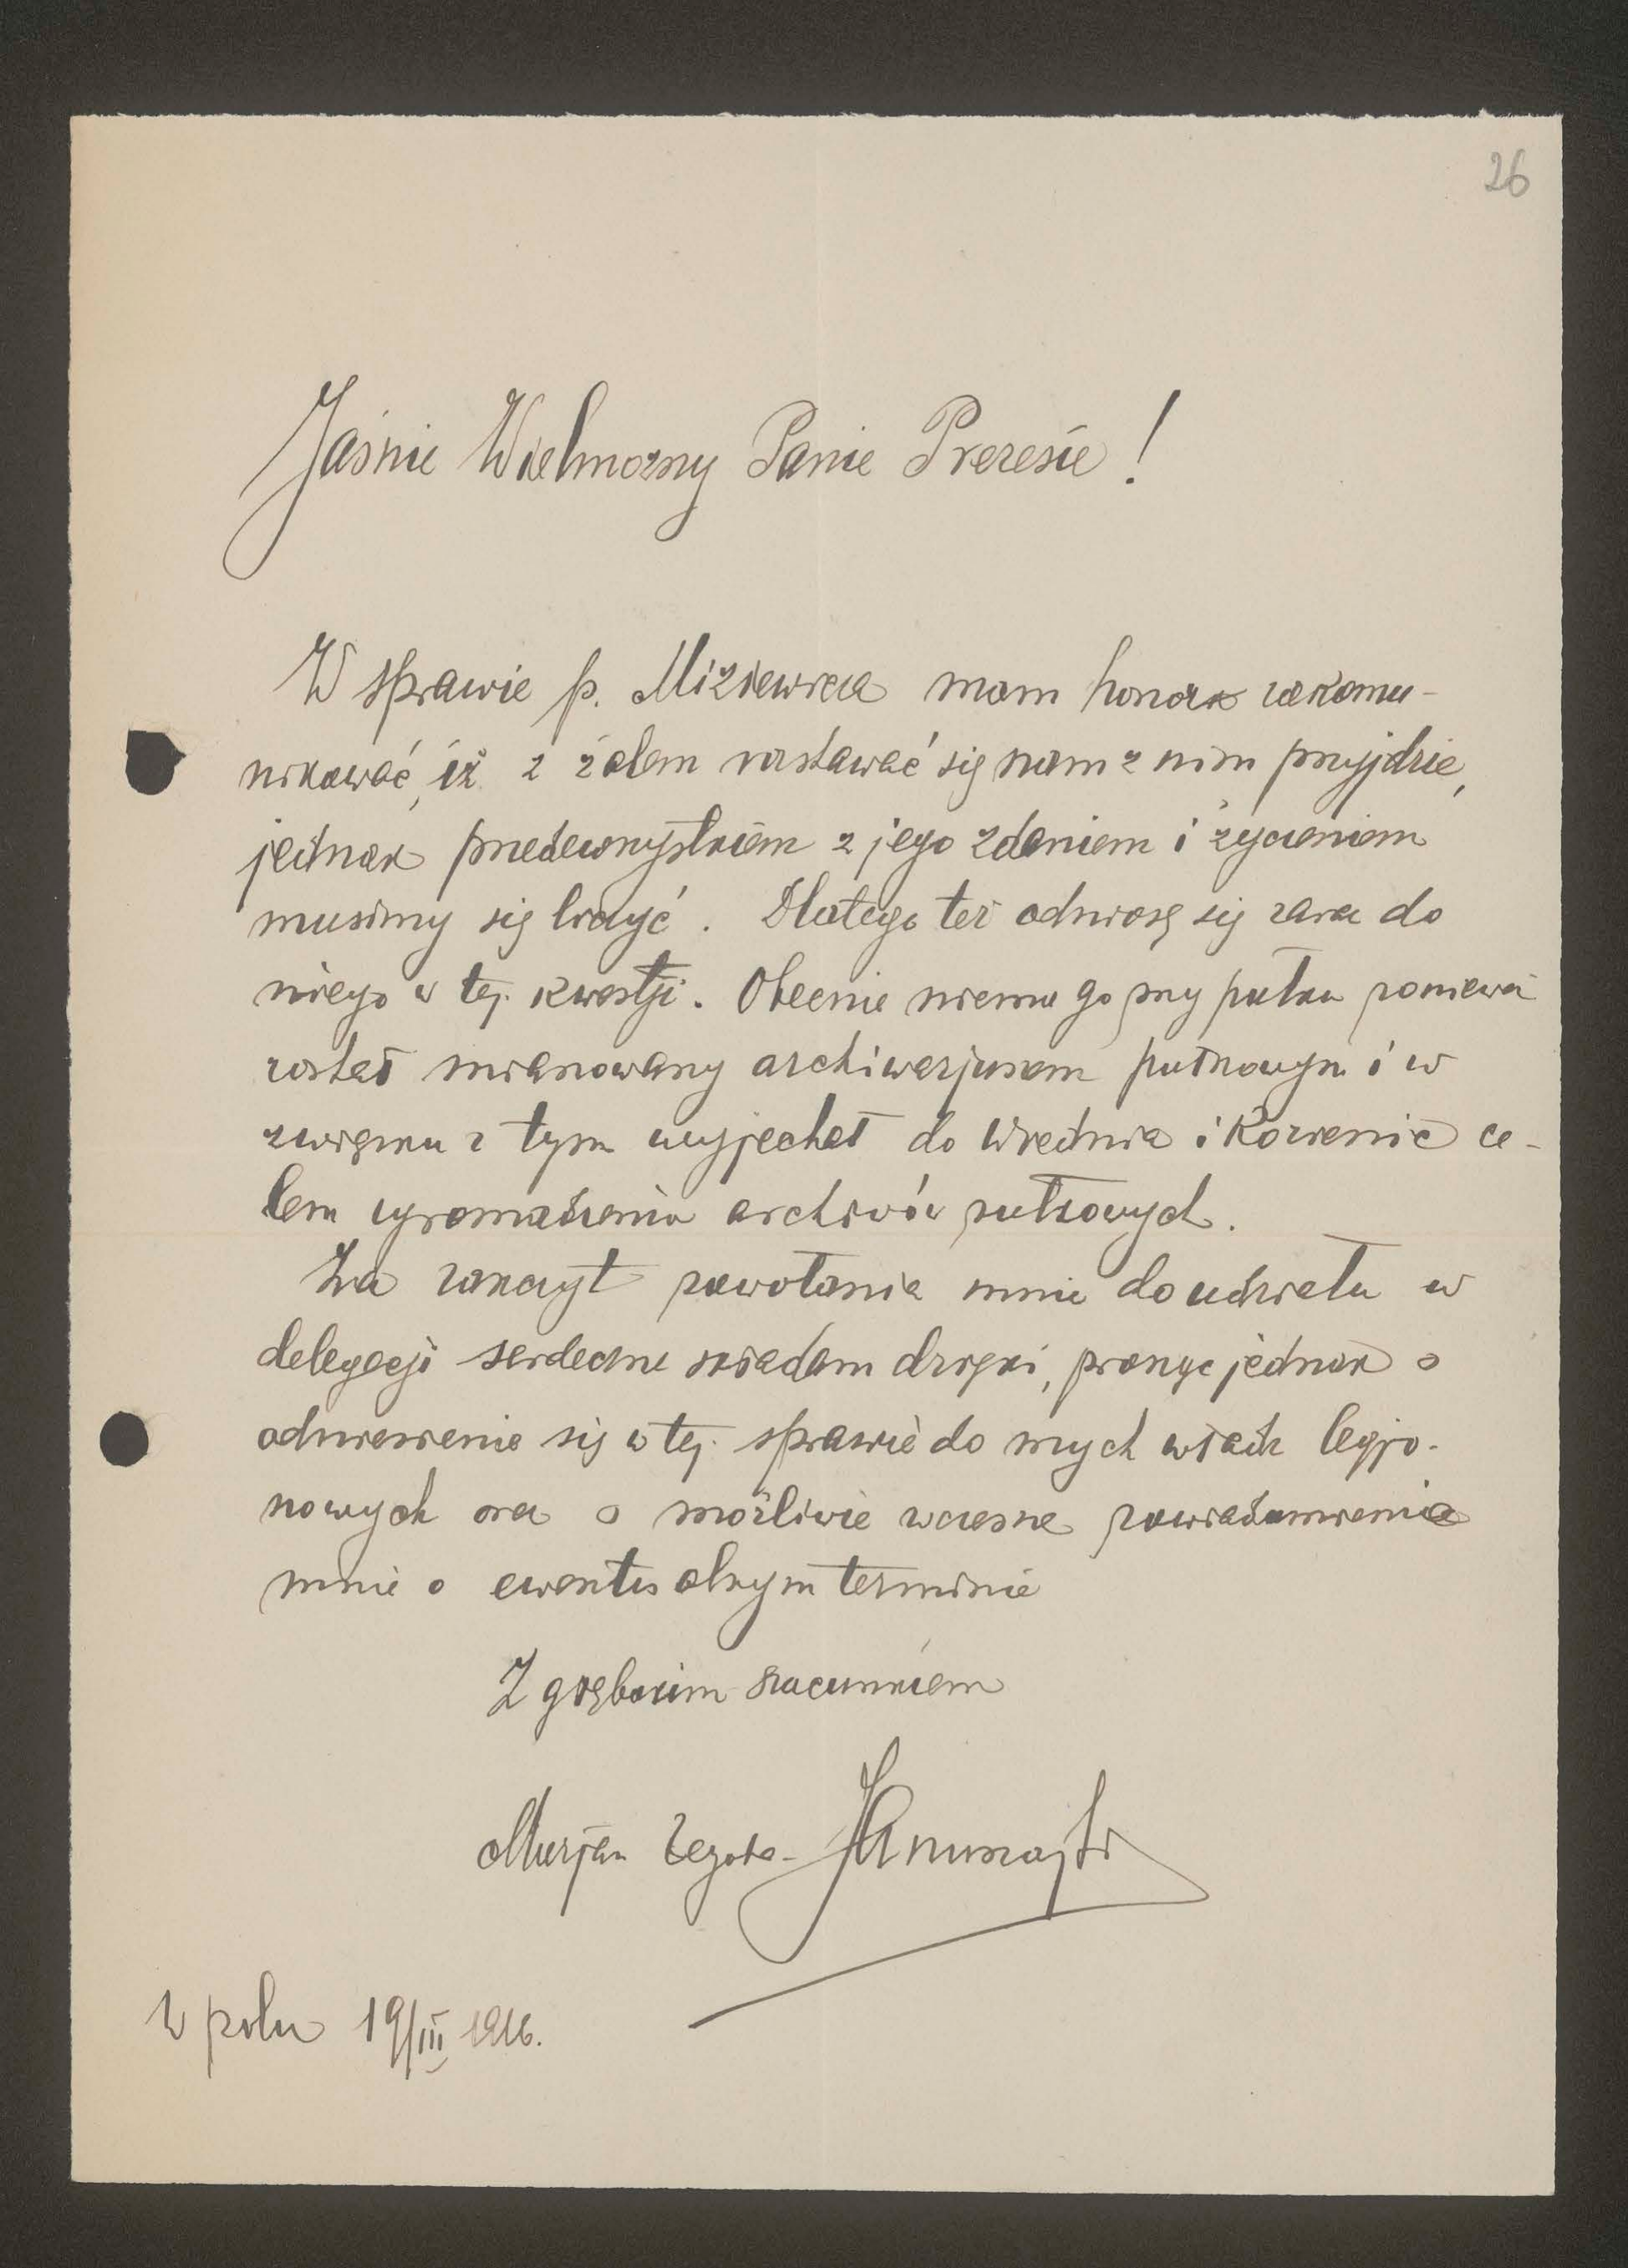 26
Jaśnie Wielmożny Panie Prezesie!
W sprawie p. Miziewicza mam honor zakomu-
nikować, iż z żalem rozstawać się nam z nim przyjdzie,
jednak przedewszystkiem z jego zdaniem i życzeniem
musimy się liczyć. Dlatego też odniosę się zaraz do
niego w tej kwestji. Obecnie niema go przy pułku ponieważ
został mianowany archiwarjuszem pułkowym i w
związku z tym wyjechał do Wiednia i Kozienic ce-
lem zgromadzenia archiwów pułkowych.
Za zaszczyt powołania mnie do udziału w
delegacji serdeczne składam dzięki, prosząc jednak o
odniesienie się w tej sprawie do mych władz legjo-
nowych oraz o możliwie wczesne powiadomienie
mnie o ewentualnym terminie
Z głębokim szacunkiem
Marjan Żegota-Januszajtis
W polu 19/III 1916.